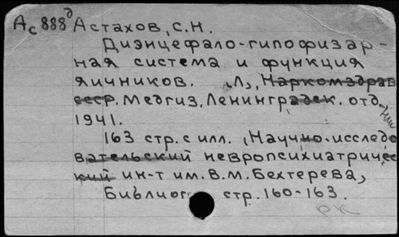 Ас888д Астахов, С.Н.
Диэнцефало-гипофизар-
ная система и функция
яичников. Л., Наркомздрав
СССР. Медгиз. Ленинградск. отд.
1941.
163 стр. с илл. (Научно-исследо
вательский невропсихиатричес
кий ин-т им. В.М. Бехтерева)
Библиог стр. 160-163.